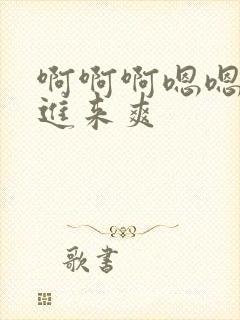 啊啊啊嗯嗯
进来爽
歌书